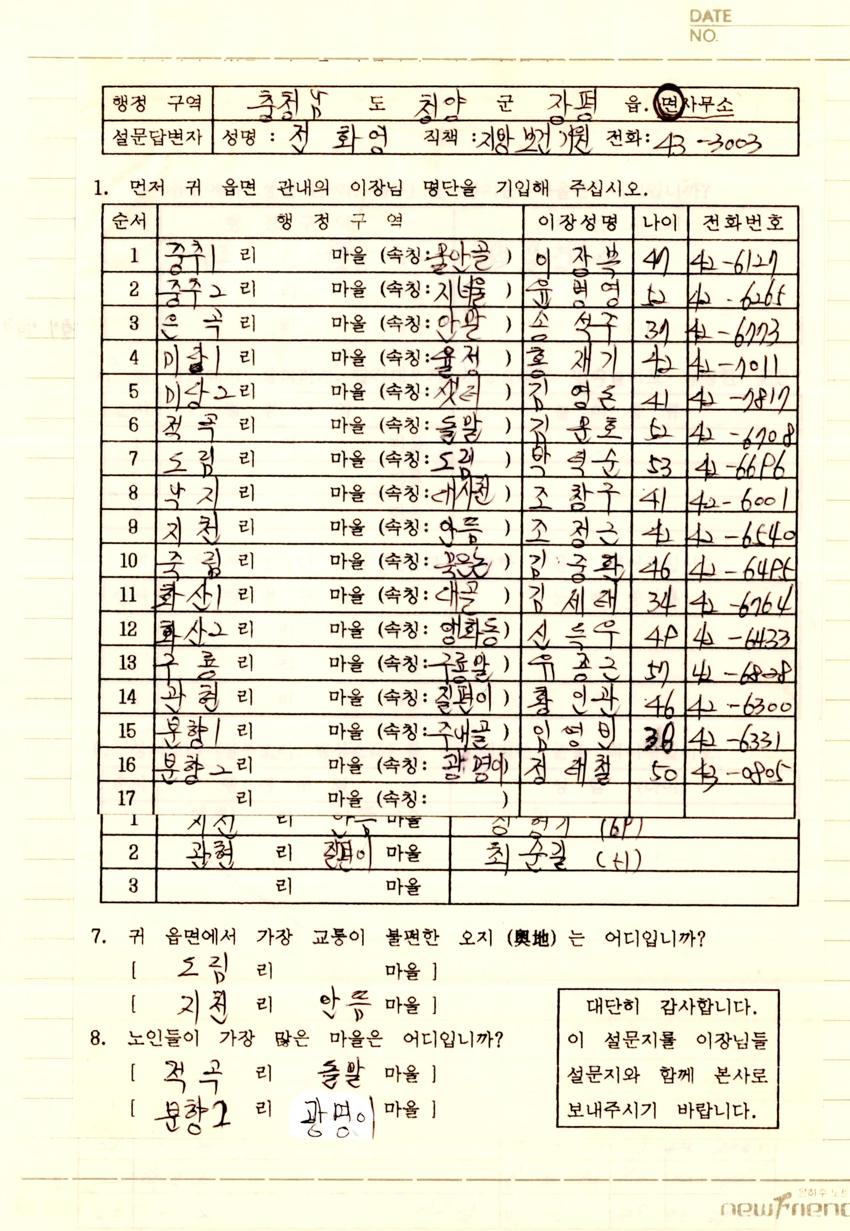 DATE
NO.
행정 구역 충청남 도 청양 군 장평 읍.면사무소
설문답변자 성명 : 전 화영 직책 :지방보건기원 전화:43-3003
1. 먼저 귀 읍면 관내의 이장님 명단을 기입해 주십시오.
순서 행 정 구 역 이장성명 나이 전화번호
1 중추1 리 마을 (속칭: ) 이 장복 47 42-6127
2 중추2 리 마을 (속칭:지녁울) 윤병영 52 42-6265
3 은곡 리 마을 (속칭:안말) 송석주 37 42-6773
4 미당1 리 마을 (속칭: ) 홍재기 42 42-7011
5 미당2리 마을 (속칭: ) 김영 41 42-7817
6 적곡 리 마을 (속칭:돌말) 김윤호 52 42-6708
7 도림 리 마을 (속칭:도림) 박덕순 53 42-6696
8 낙지 리 마을 (속칭:대사천) 조창구 41 42-6001
9 지천 리 마을 (속칭:안뜸) 조정근 42 42-6540
10 죽림 리 마을 (속칭: ) 김중환 46 42-6495
11 화산1 리 마을 (속칭:대골) 김세래 34 42-6764
12 화산2 리 마을 (속칭:영화동) 신득우 49 42-6433
13 구룡 리 마을 (속칭:구룡말) 유종근 57 42-6808
14 관현 리 마을 (속칭:질편이) 황인관 46 42-6300
15 분향1 리 마을 (속칭:주내골) 임영빈 38 42-6331
16 분향2 리 마을 (속칭: 광명이) 정래철 50 43-0805
17 리 마을 (속칭: )
1 지천 리 안뜸 마을 (69)
2 관현 리 질편이 마을 최순길
3 리 마을
7. 귀 읍면에서 가장 교통이 불편한 오지 (奧地) 는 어디입니까?
[ 도림 리 마을 ]
[ 지천 리 안뜸 마을 ]
8. 노인들이 가장 많은 마을은 어디입니까?
[ 적곡 리 돌말 마을 ]
[ 분향2 리 광명이 마을 ]
대단히 감사합니다.
이 설문지를 이장님들
설문지와 함께 본사로
보내주시기 바랍니다.
newfriend